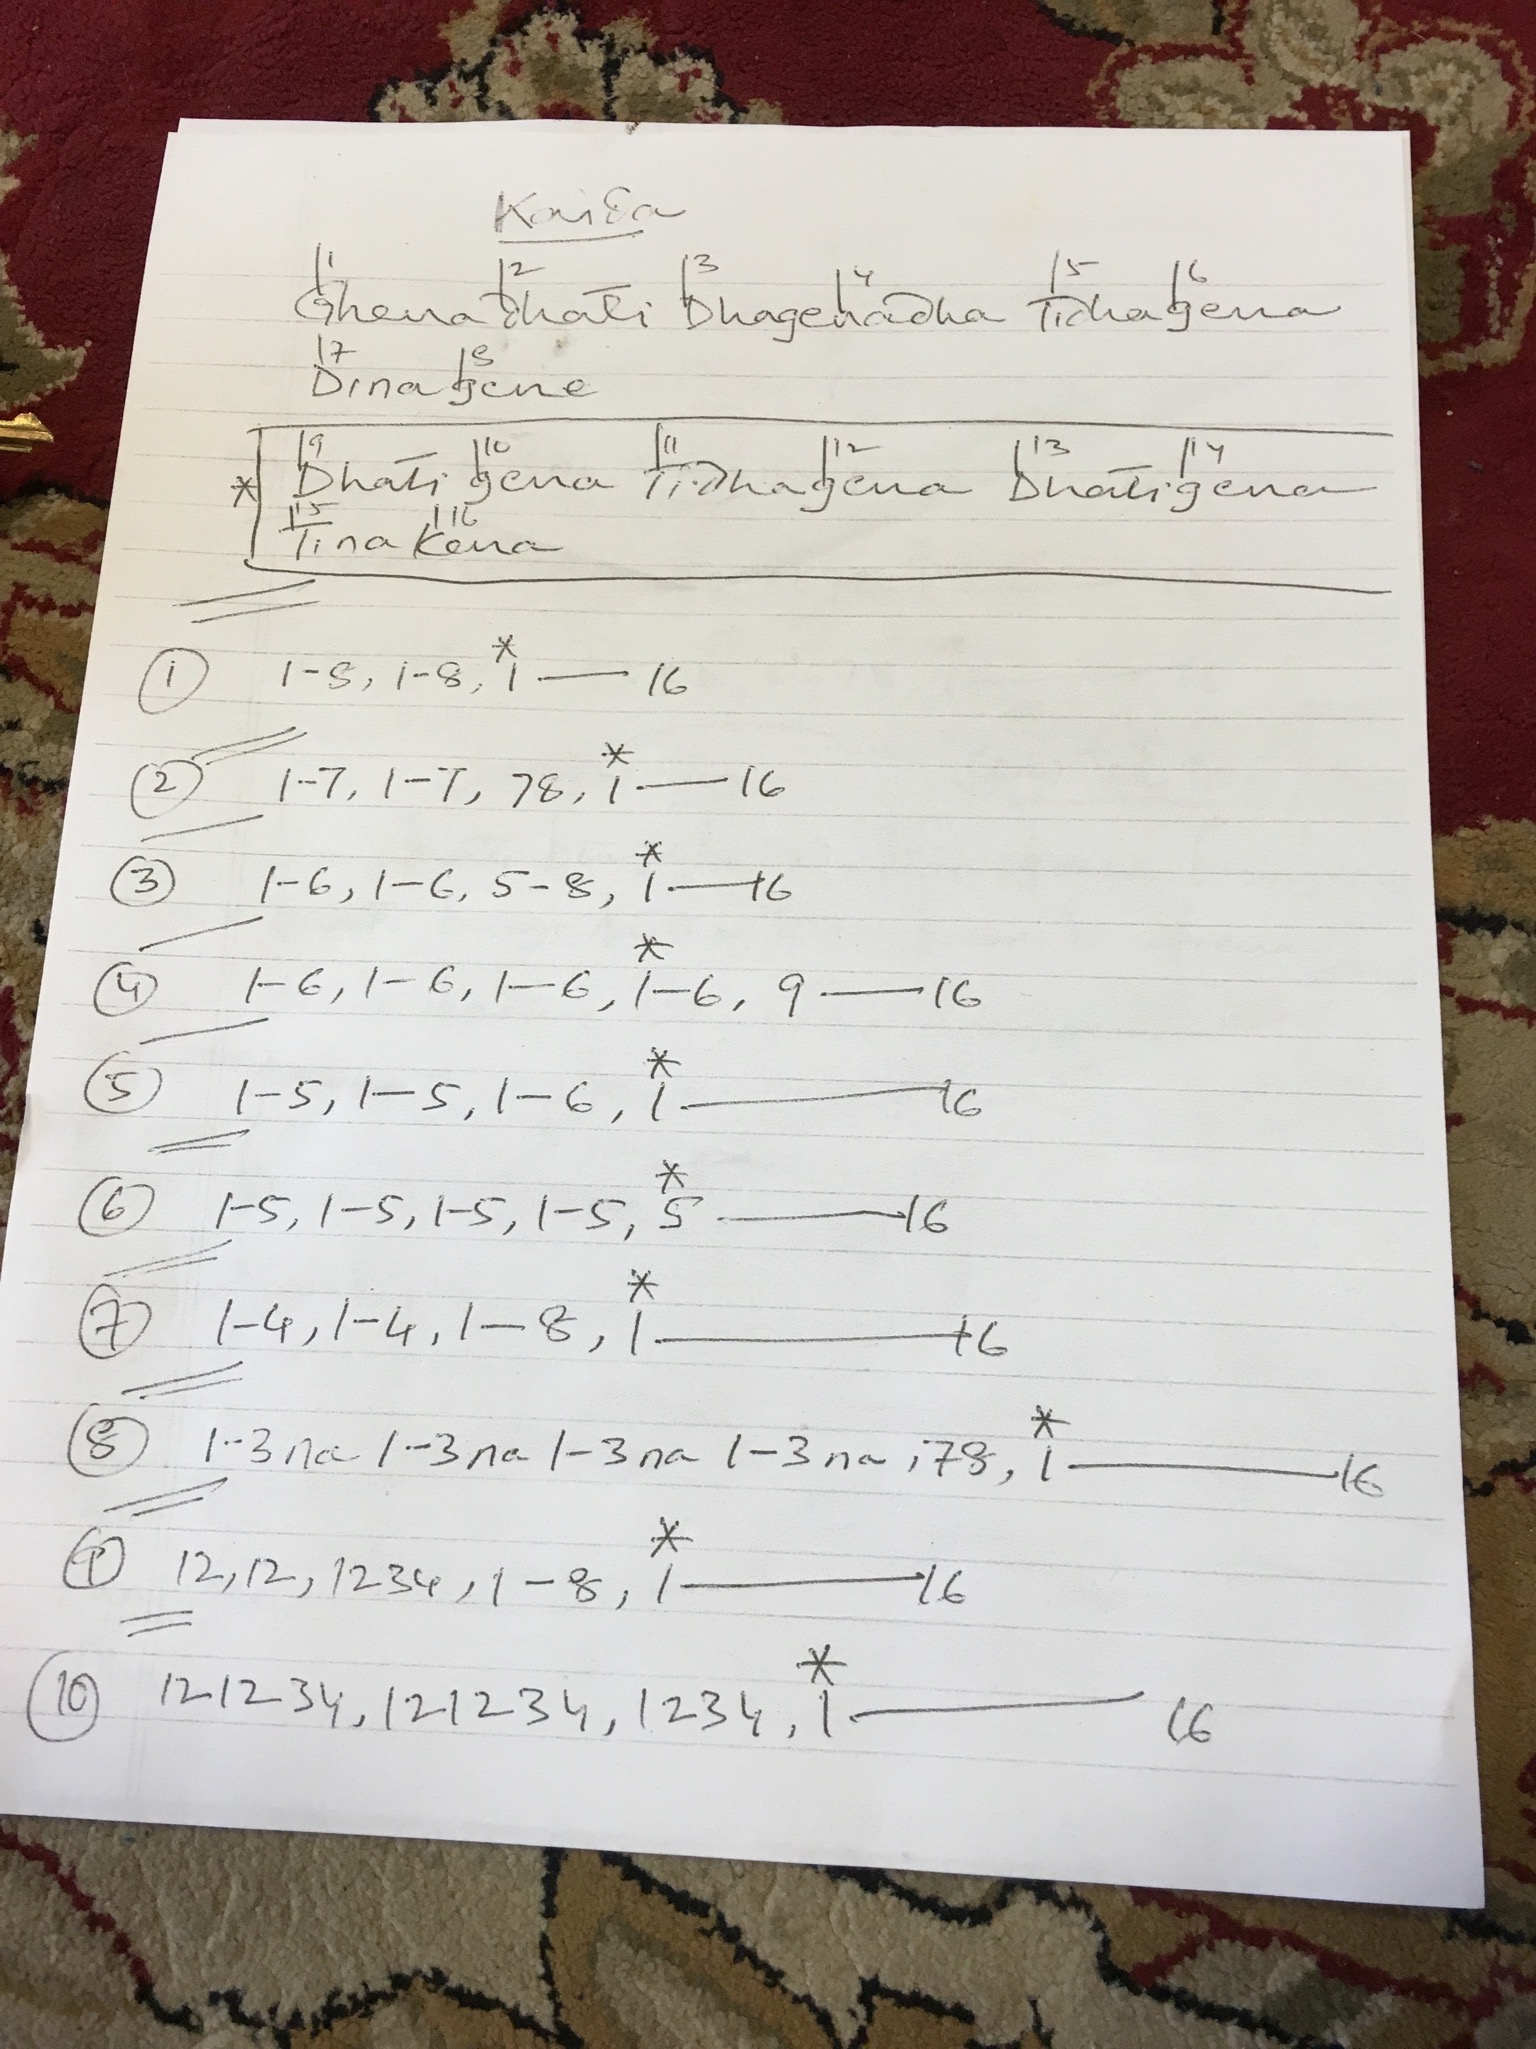 Kaida
1 2 3 4 5 6
Ghena Dhati Dhagenadha Tidhagena
7 8
Dinagene
9 10 11 12 13 14
* Dhati gena Tidhagena Dhatigena
15 16
Tina Kena
*
① 1-8, 1-8, 1 — 16
*
② 1-7, 1-7, 78, 1 — 16
*
③ 1-6, 1-6, 5-8, 1 — 16
*
④ 1-6, 1-6, 1-6, 1-6, 9 — 16
*
⑤ 1-5, 1-5, 1-6, 1 — 16
*
⑥ 1-5, 1-5, 1-5, 1-5, 5 — 16
*
⑦ 1-4, 1-4, 1-8, 1 — 16
*
⑧ 1-3 na 1-3 na 1-3 na 1-3 na , 78, 1 — 16
*
⑨ 12, 12, 1234, 1-8, 1 — 16
*
⑩ 121234, 121234, 1234, 1 — 16